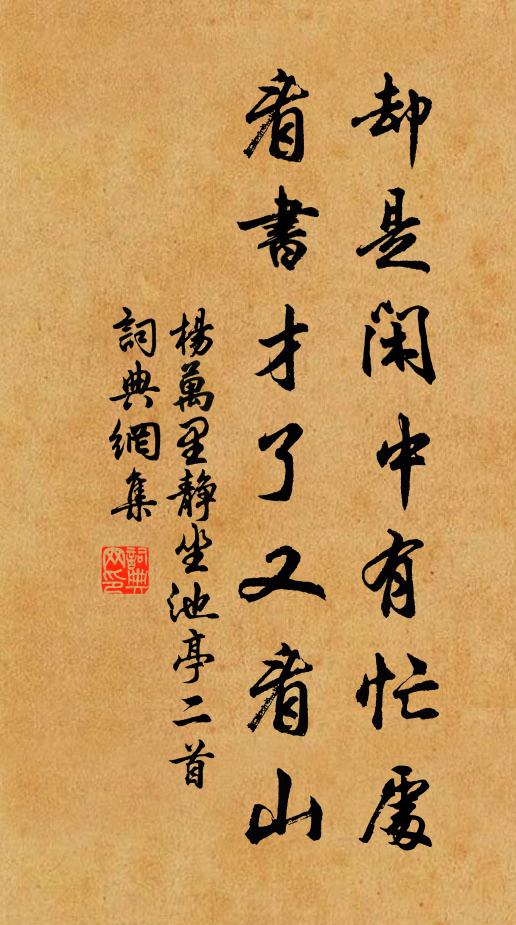 却是閑中有忙處
看書才了又看山
楊萬里靜坐池亭二首
詞典網集
詞典网印